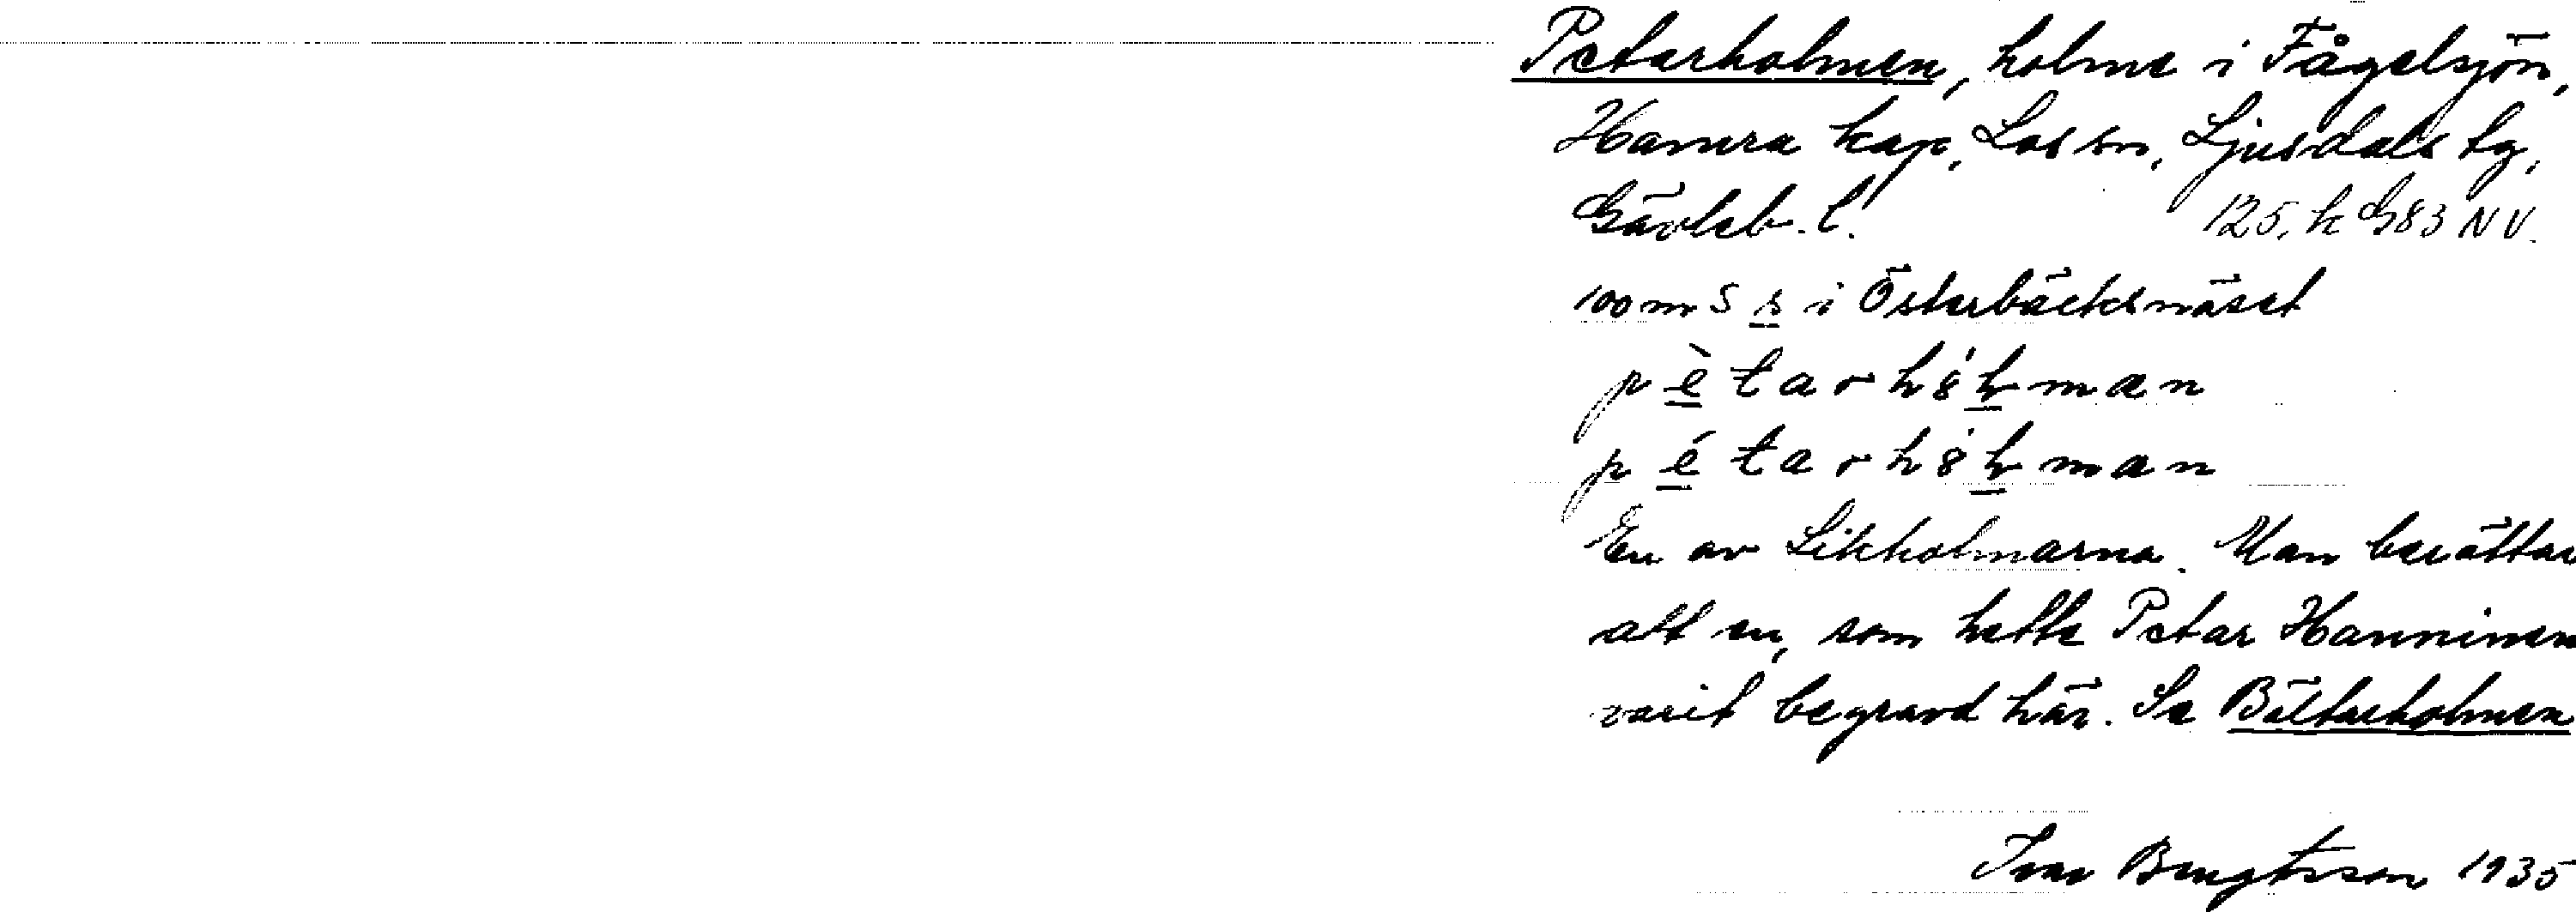 Petarholmen, holme i Fågelsjön,
Hamra kap, Los sn, Ljusdals tg,
Gävleb. l. 125, k G83 NV.
100 m S s i Österbäcksnäset
pètarhòlman
pétarhòlman
En av Likholmarna. Man berättar
att en, som hette Petar Hanninen
varit begravd här. Se Bältarholmen
Ivar Bengtsson 1935